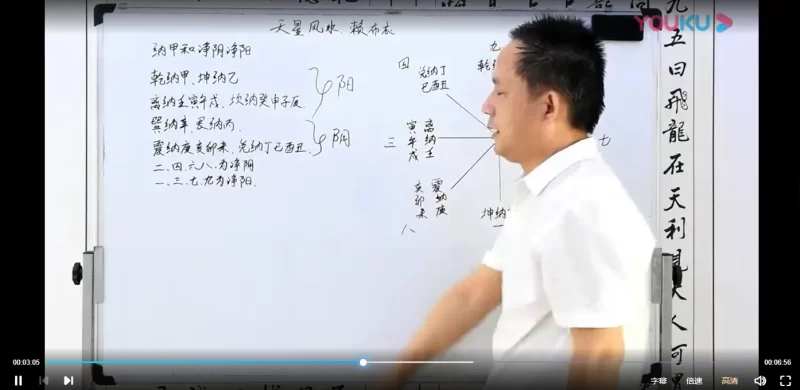 天星风水 赖布衣
纳甲和净阴净阳
乾纳甲、坤纳乙
离纳壬寅午戌、坎纳癸申子辰
阳
巽纳辛、艮纳丙
震纳庚亥卯未、兑纳丁巳酉丑
阴
二、四、六、八、为净阴
一、三、七、九为净阳.
九
四
兑纳丁
巳酉丑
三
离纳壬
寅午戌
七
震纳庚
亥卯未
八
坤纳
一
YOUKU
九五曰飛龍在天利見大人可
00:03:05
00:06:56
字幕 倍速 高清